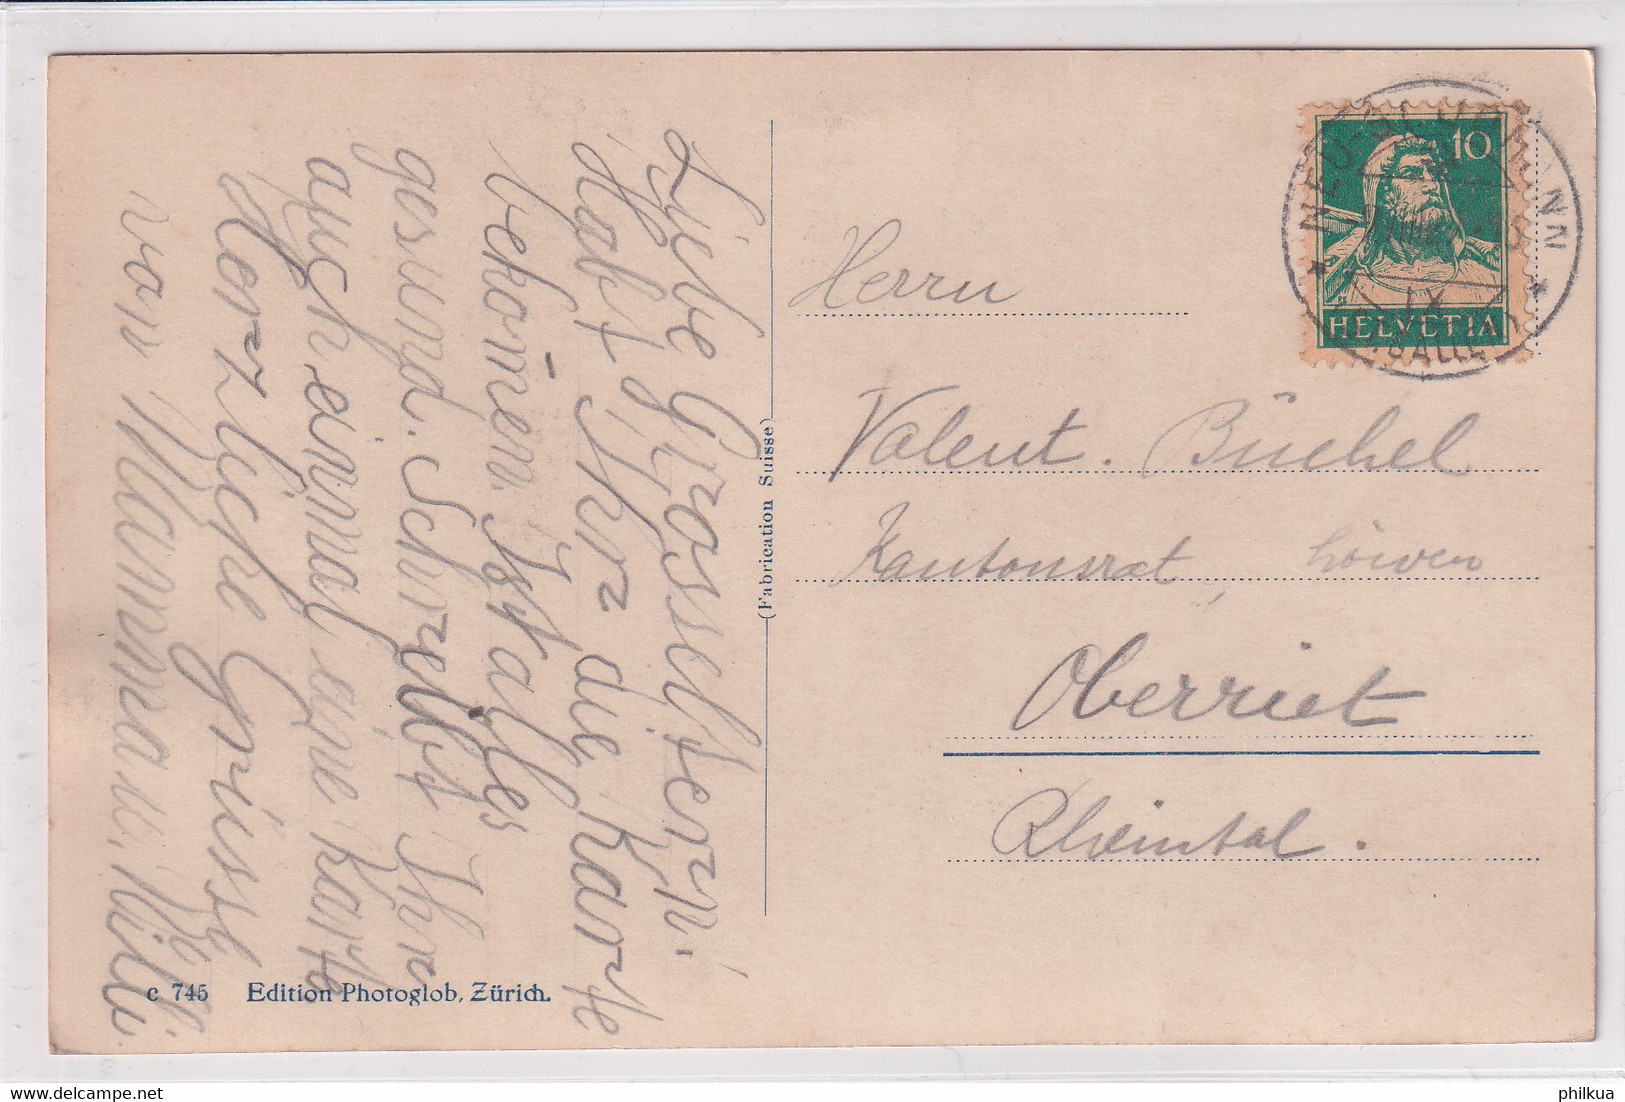 Liebe Grosseltern.
Habt Ihr die Karte
bekom̄en. Ist alles
gesund. Schreibt Ihr
auch einmal eine Karte
Herzliche Grüsse
von Mamma u. Willi.
c 745 Edition Photoglob, Zürich.
(Fabrication Suisse)
10
HELVETIA
NEU ST. JOHANN
IX
Herrn
Valent. Büchel
Kantonsrat, Löwen
Oberriet
Rheintal.
philkua